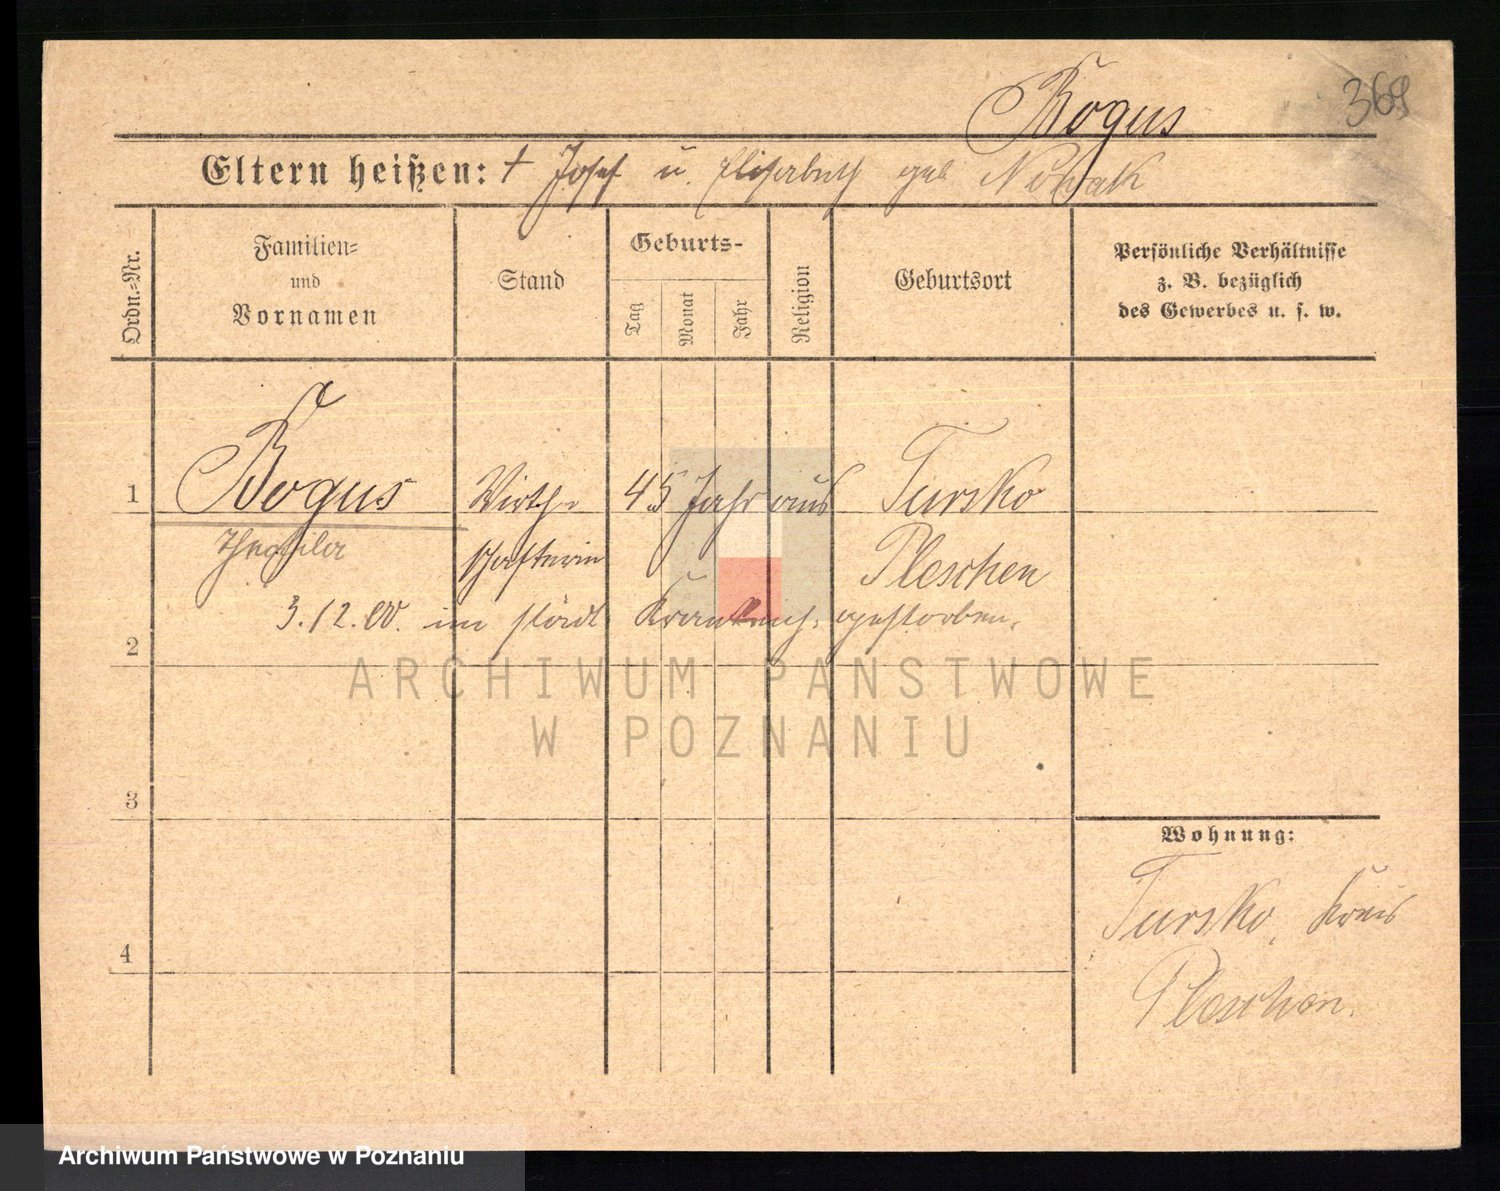 Bogus
369
Eltern heißen: † Josef u. Elisabeth geb Nowak
Ordn.-Nr.
Familien- und Vornamen
Stand
Geburts-
Tag
Monat
Jahr
Religion
Geburtsort
Persönliche Verhältnisse
z. B. bezüglich
des Gewerbes u. s. w.
1 Bogus Wirth- 45 Jahr aus Tursko
Theophila schafterin Pleschen
3.12.00. im städt. Krankenh. gestorben.
2
ARCHIWUM PAŃSTWOWE
W POZNANIU
3
Wohnung:
Tursko, Kreis
Pleschen.
4
Archiwum Państwowe w Poznaniu